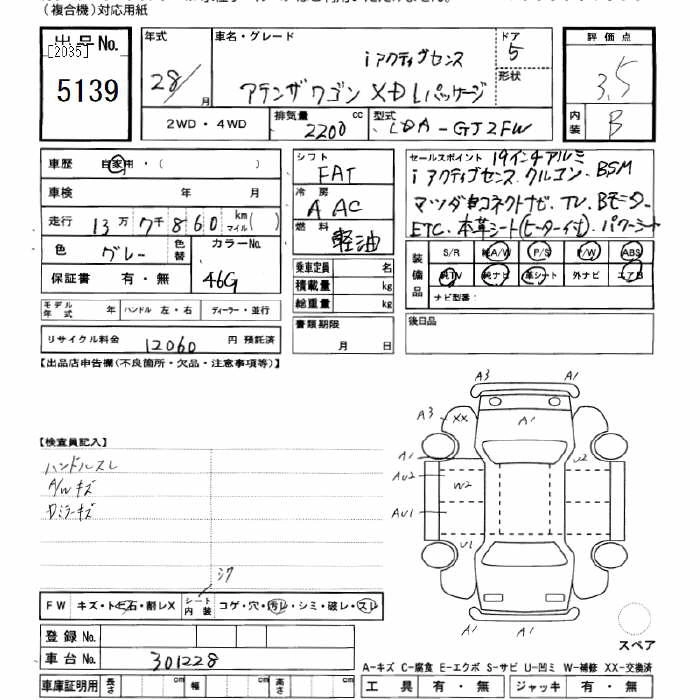 (複合機)対応用紙
出品No.
[2035]
5139
年式
28/
月
車名・グレード
iアクティブセンス
アテンザワゴン XDLパッケージ
ドア
5
形状
評価点
3.5
内装
B
2WD・4WD
排気量
2200
cc
型式
LDA-GJ2FW
車歴 自家用・( )
車検 年 月
走行 13万7千860 km マイル( )
色 グレー 色替 カラーNo. 46G
保証書 有・無
モデル年式 年 ハンドル 左・右 ディーラー・並行
リサイクル料金 12060 円 預託済
シフト
FAT
冷房
AAC
燃料
軽油
乗車定員 名
積載量 kg
総重量 kg
書類期限
月 日
セールスポイント 19インチアルミ
iアクティブセンス. クルコン. BSM
マツダコネクトナビ. TV. Bモニター
ETC. 本革シート(ヒーター付). パワーシート
装備品
S/R 純A/W P/S P/W ABS
純TV 純ナビ 革シート 外ナビ エアB
ナビ型番:
後日品
【出品店申告欄(不良箇所・欠品・注意事項等)】
【検査員記入】
ハンドルスレ
A/Wキズ
Dミラーキズ
シワ
FW キズ・トビ石・割レX シート内装 コゲ・穴・汚レ・シミ・破レ・スレ
登録No.
車台No. 301228
車庫証明用 長さ cm 幅 cm 高さ cm
A3 A1
A3 XX A1
A1 U2
AU2 W2
AU1
U1
A1 A1
スペア
A-キズ C-腐食 E-エクボ S-サビ U-凹ミ W-補修 XX-交換済
工具 有・無 ジャッキ 有・無